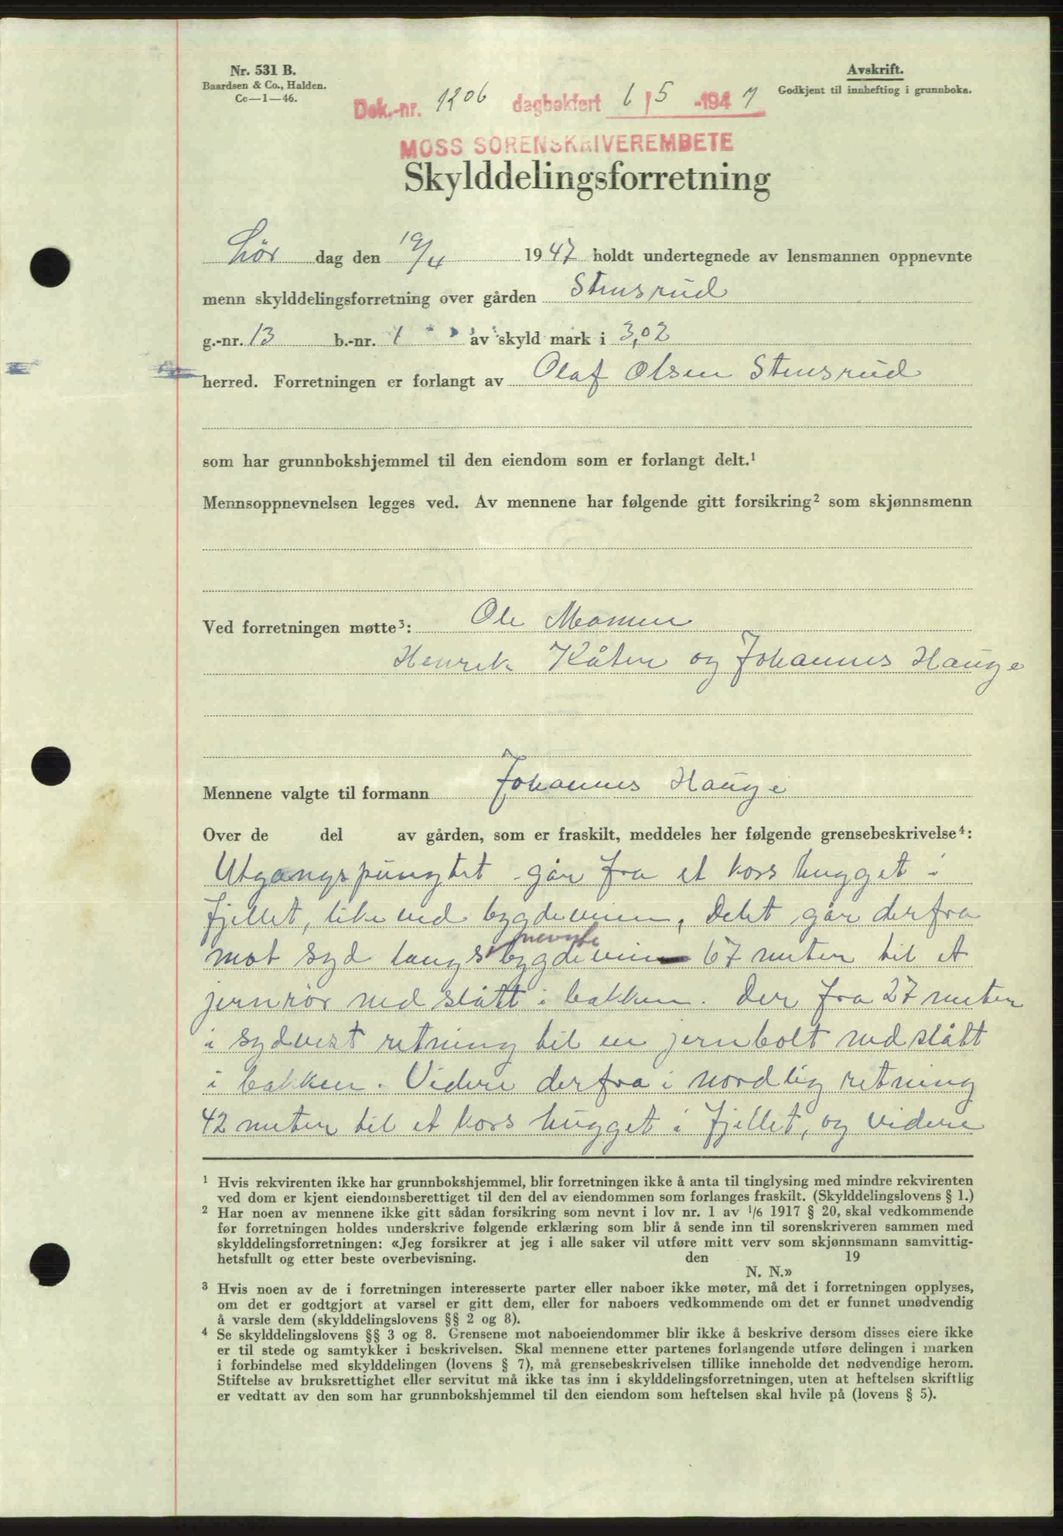 Nr. 531 B.
Baardsen & Co., Halden.
Cc—1—46.
Avskrift.
Godkjent til innhefting i grunnboka.
Dok.-nr. 1206 dagbokført 6/5 -1947
MOSS SORENSKRIVEREMBETE
Skylddelingsforretning
Lør dag den 19/4 1947 holdt undertegnede av lensmannen oppnevnte
menn skylddelingsforretning over gården Stensrud
g.-nr. 13 b.-nr. 1 av skyld mark i 3,02
herred. Forretningen er forlangt av Olaf Olsen Stensrud
som har grunnbokshjemmel til den eiendom som er forlangt delt.¹
Mennsoppnevnelsen legges ved. Av mennene har følgende gitt forsikring² som skjønnsmenn
Ved forretningen møtte³: Ole Momen
Henrik Kåten og Johannes Hauge
Mennene valgte til formann Johannes Hauge
Over de del av gården, som er fraskilt, meddeles her følgende grensebeskrivelse⁴:
Utgangspungtet går fra et kors hugget i
fjellet, like ved bygdeveien, Delet går derfra
nevnte
mot syd langs bygdevein 67 meter til et
jernrör ned slått i bakken. Der fra 27 meter
i sydvest retning til en jernbolt ned slått
i bakken. Videre derfra i nordlig retning
42 meter til et kors hugget i fjellet, og videre
¹ Hvis rekvirenten ikke har grunnbokshjemmel, blir forretningen ikke å anta til tinglysing med mindre rekvirenten
ved dom er kjent eiendomsberettiget til den del av eiendommen som forlanges fraskilt. (Skylddelingslovens § 1.)
² Har noen av mennene ikke gitt sådan forsikring som nevnt i lov nr. 1 av 1/6 1917 § 20, skal vedkommende
før forretningen holdes underskrive følgende erklæring som blir å sende inn til sorenskriveren sammen med
skylddelingsforretningen: «Jeg forsikrer at jeg i alle saker vil utføre mitt verv som skjønnsmann samvittig-
hetsfullt og etter beste overbevisning. den 19
N. N.»
³ Hvis noen av de i forretningen interesserte parter eller naboer ikke møter, må det i forretningen opplyses,
om det er godtgjort at varsel er gitt dem, eller for naboers vedkommende om det er funnet unødvendig
å varsle dem (skylddelingslovens §§ 2 og 8).
⁴ Se skylddelingslovens §§ 3 og 8. Grensene mot naboeiendommer blir ikke å beskrive dersom disses eiere ikke
er til stede og samtykker i beskrivelsen. Skal mennene etter partenes forlangende utføre delingen i marken
i forbindelse med skylddelingen (lovens § 7), må grensebeskrivelsen tillike inneholde det nødvendige herom.
Stiftelse av bruksrettighet eller servitut må ikke tas inn i skylddelingsforretningen, uten at heftelsen skriftlig
er vedtatt av den som har grunnbokshjemmel til den eiendom som heftelsen skal hvile på (lovens § 5).